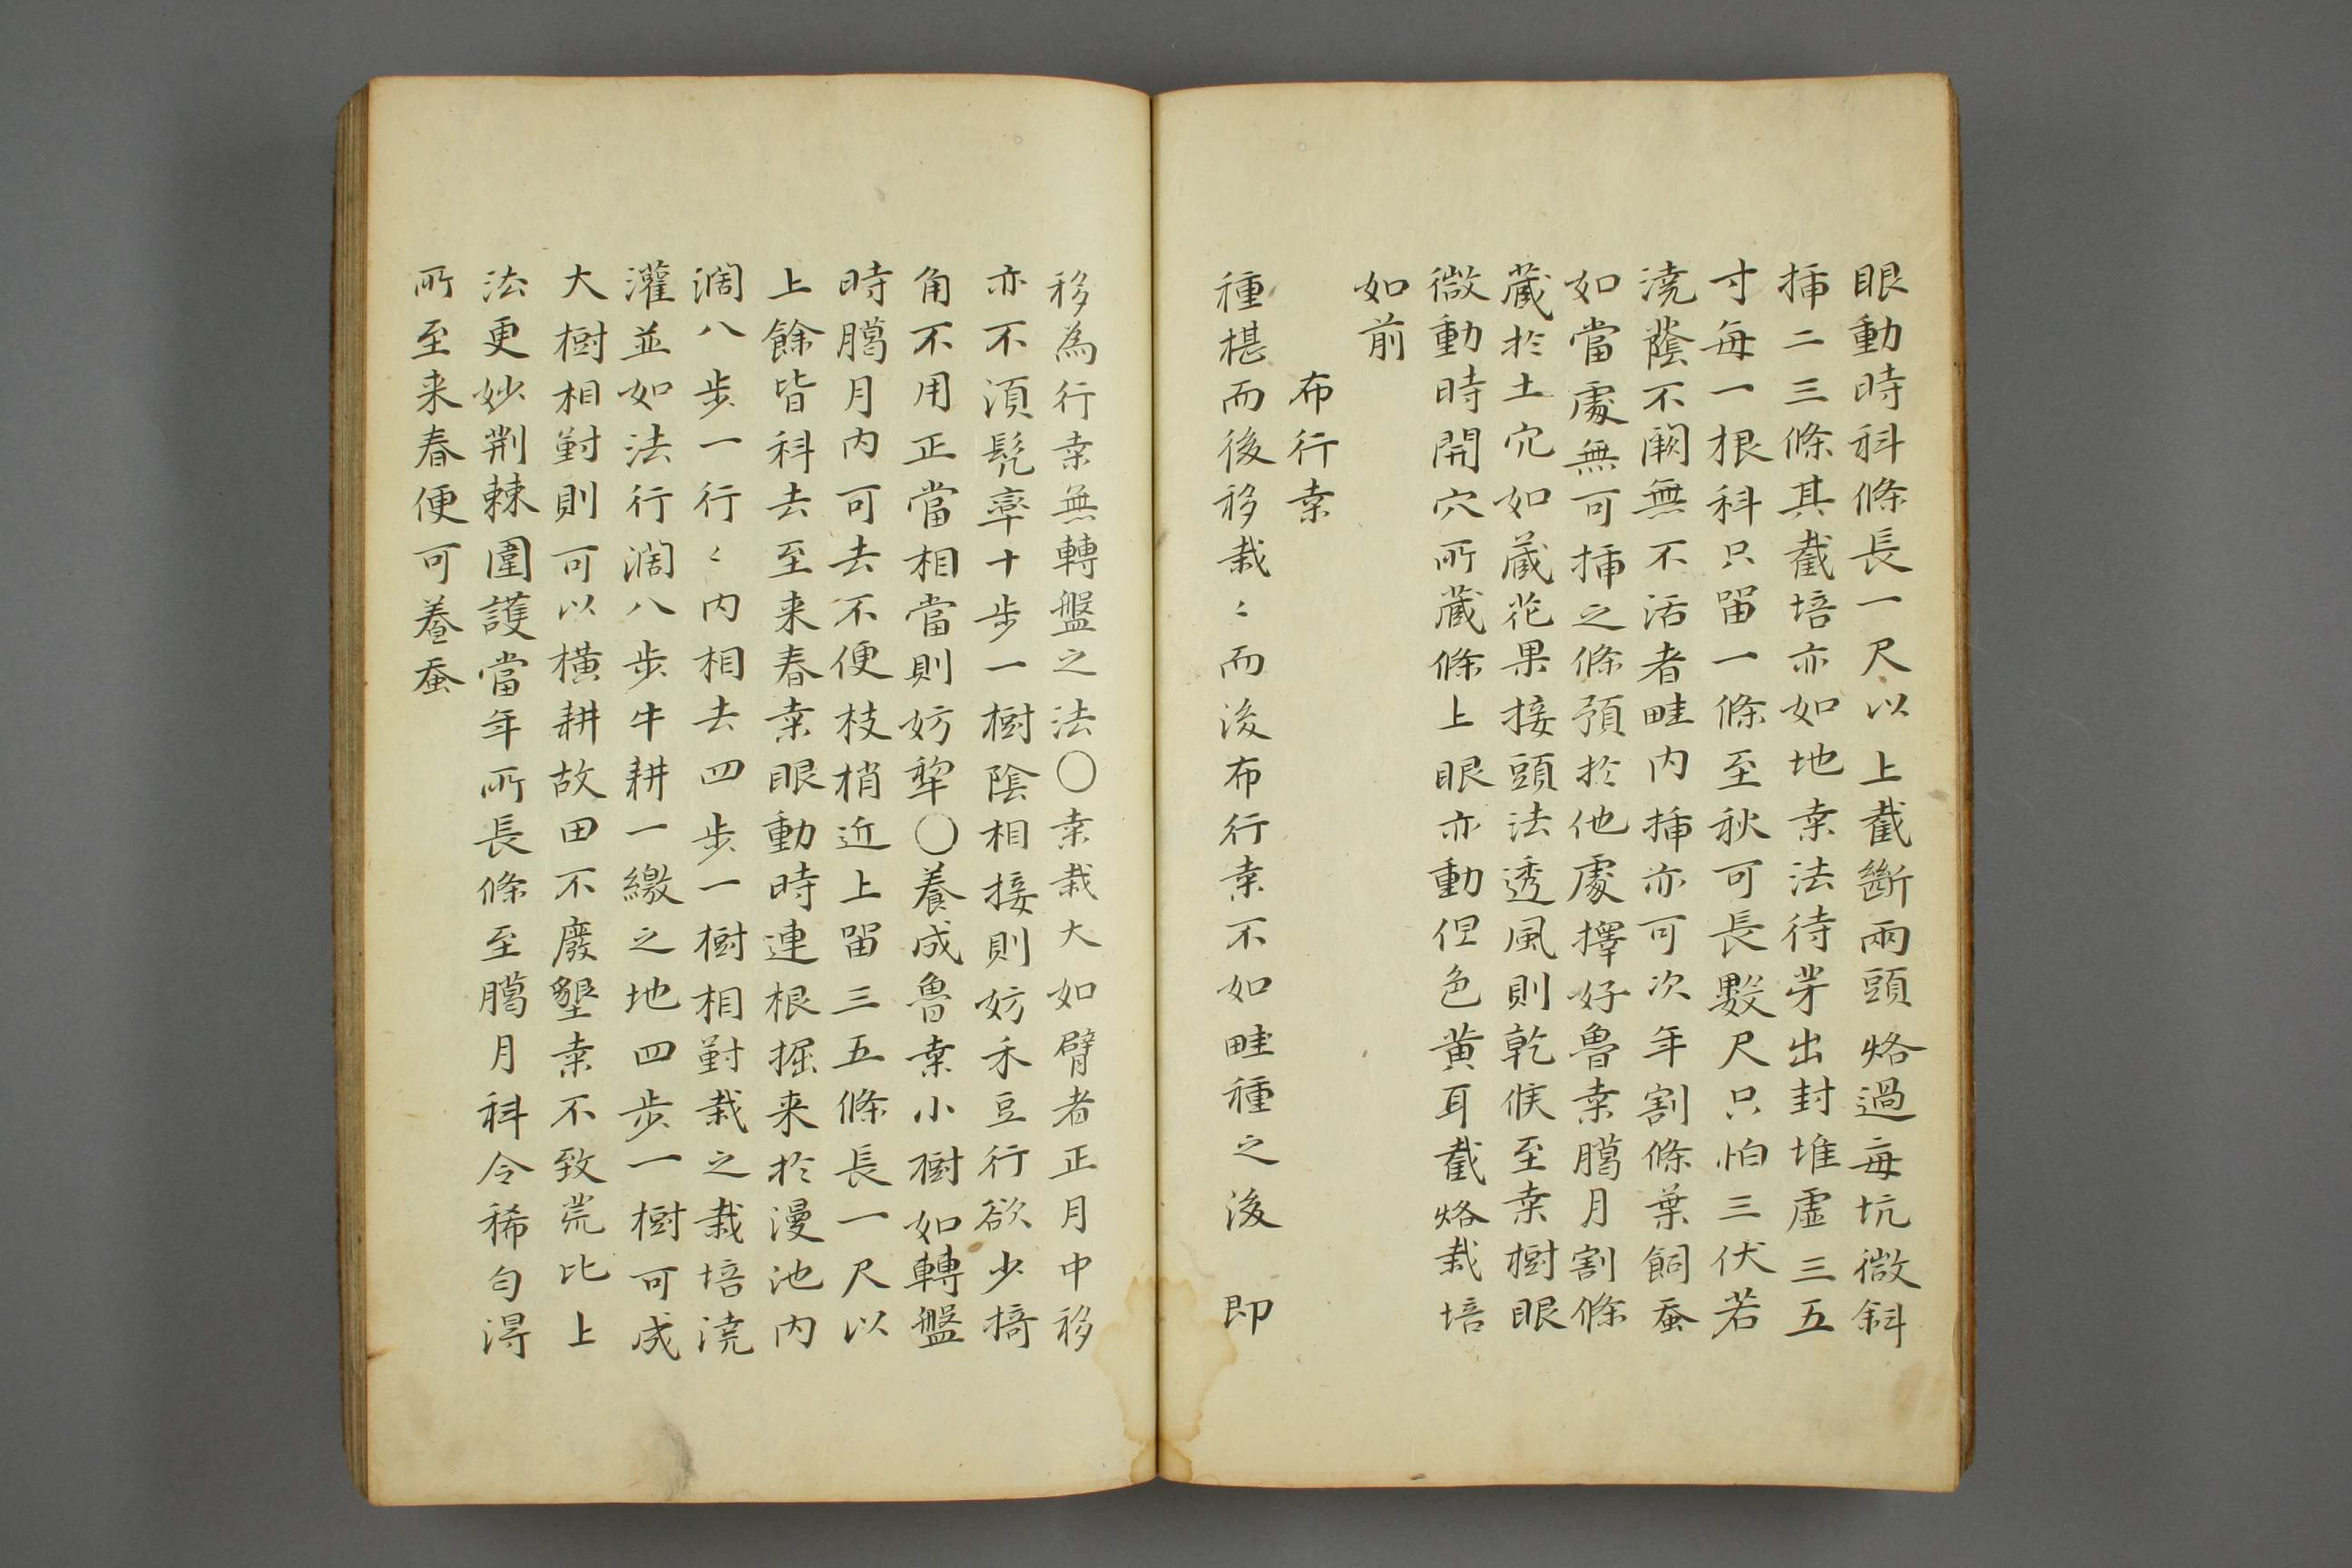 眼動時科條長一尺以上截斷兩頭烙過每坑微斜
揷二三條其截培亦如地桒法待芽出封堆虛三五
寸每一根科只留一條至秋可長數尺只怕三伏若
澆蔭不闕無不活者畦内揷亦可次年割條葉飼蚕
如當處無可揷之條預於他處擇好魯桒臈月割條
藏於土穴如藏花果接頭法透風則乾候至桒樹眼
微動時開穴所藏條上眼亦動但色黃耳截烙栽培
如前
布行桒
種椹而後移栽〻而後布行桒不如畦種之後即
移為行桒無轉盤之法〇桒栽大如臂者正月中移
亦不湏髡率十步一樹陰相接則妨禾豆行欲少掎
角不用正當相當則妨犂〇養成魯桒小樹如轉盤
時臈月内可去不便枝梢近上留三五條長一尺以
上餘皆科去至来春桒眼動時連根掘来於漫池内
濶八步一行〻内相去四步一樹相對栽之栽培澆
灌並如法行濶八步牛耕一繳之地四步一樹可成
大樹相對則可以橫耕故田不廢墾桒不致荒比上
法更妙荆棘圍護當年所長條至臈月科令稀勻淂
所至来春便可養蚕